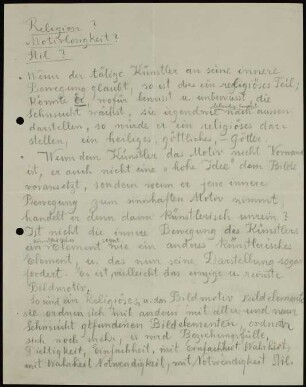 Religion?
Motivlosigkeit?
Stil?
Wenn der tätige Künstler an seine innere
Bewegung glaubt, so ist dies ein religiöses Teil;
könnte er, wofür bewusst u. unbewusst die
Sehnsucht wächst, sie irgendwie nach aussen
darstellen, so würde er ein religiöses dar-
stellen, ein heiliges, göttliches
Wenn dem Künstler das Motiv nicht Vorwand
ist, er auch nicht eine "hohe Idee" dem Bilde
voraussetzt, sondern wenn er jene innere
Bewegung zum Motiv nimmt,
handelt er denn dann künstlerisch unrein?
Ist nicht die innere Bewegung des Künstlers
ein Element wie ein andres künstlerisches
Element, u. das nun seine Darstellung
fordert. Es ist vielleicht das einzige u. reinste
Bildmotiv.
So sind ein Religiöses u. das Bildmotiv Bildelemente
sie ordnen sich mit andern mit alter und neuer
Sehnsucht gefundenen Bildelementen, ordnen
sich noch mehr, es wird Beziehungsfülle,
Dichtigkeit, Einfachheit, mit Einfachheit Wahrheit,
mit Wahrheit Notwendigkeit, mit Notwendigkeit Stil.